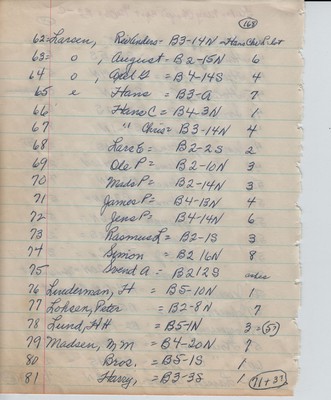 168
62 = Larsen, Rev Anders - B3-14N - Hans Chr Lot
63 = " , August - B2-15N 6
64 " , Axel G = B4-14S 4
65 " Hans = B3-A 7
66 Hans C = B4-3N 1
67 " Chris = B3-14N 4
68 Lars E = B2-2S 2
69 Ole P = B2-10N 3
70 Mads P = B2-14N 3
71 James P = B4-13N 4
72 Jens P = B4-14N 6
73 Rasmus L = B2-1S 3
74 Simon = B2 16N 8
75 Svend A = B2 12S
76 Linderman, H = B5-10N 1
77 Lohsen, Peter = B2-8N 7
78 Lund, HH = B5-1N 3 = 57
79 Madsen, M M = B4-20N 7
80 Bros. = B5-1S 1
81 Harry, = B3-3S 1 71+37